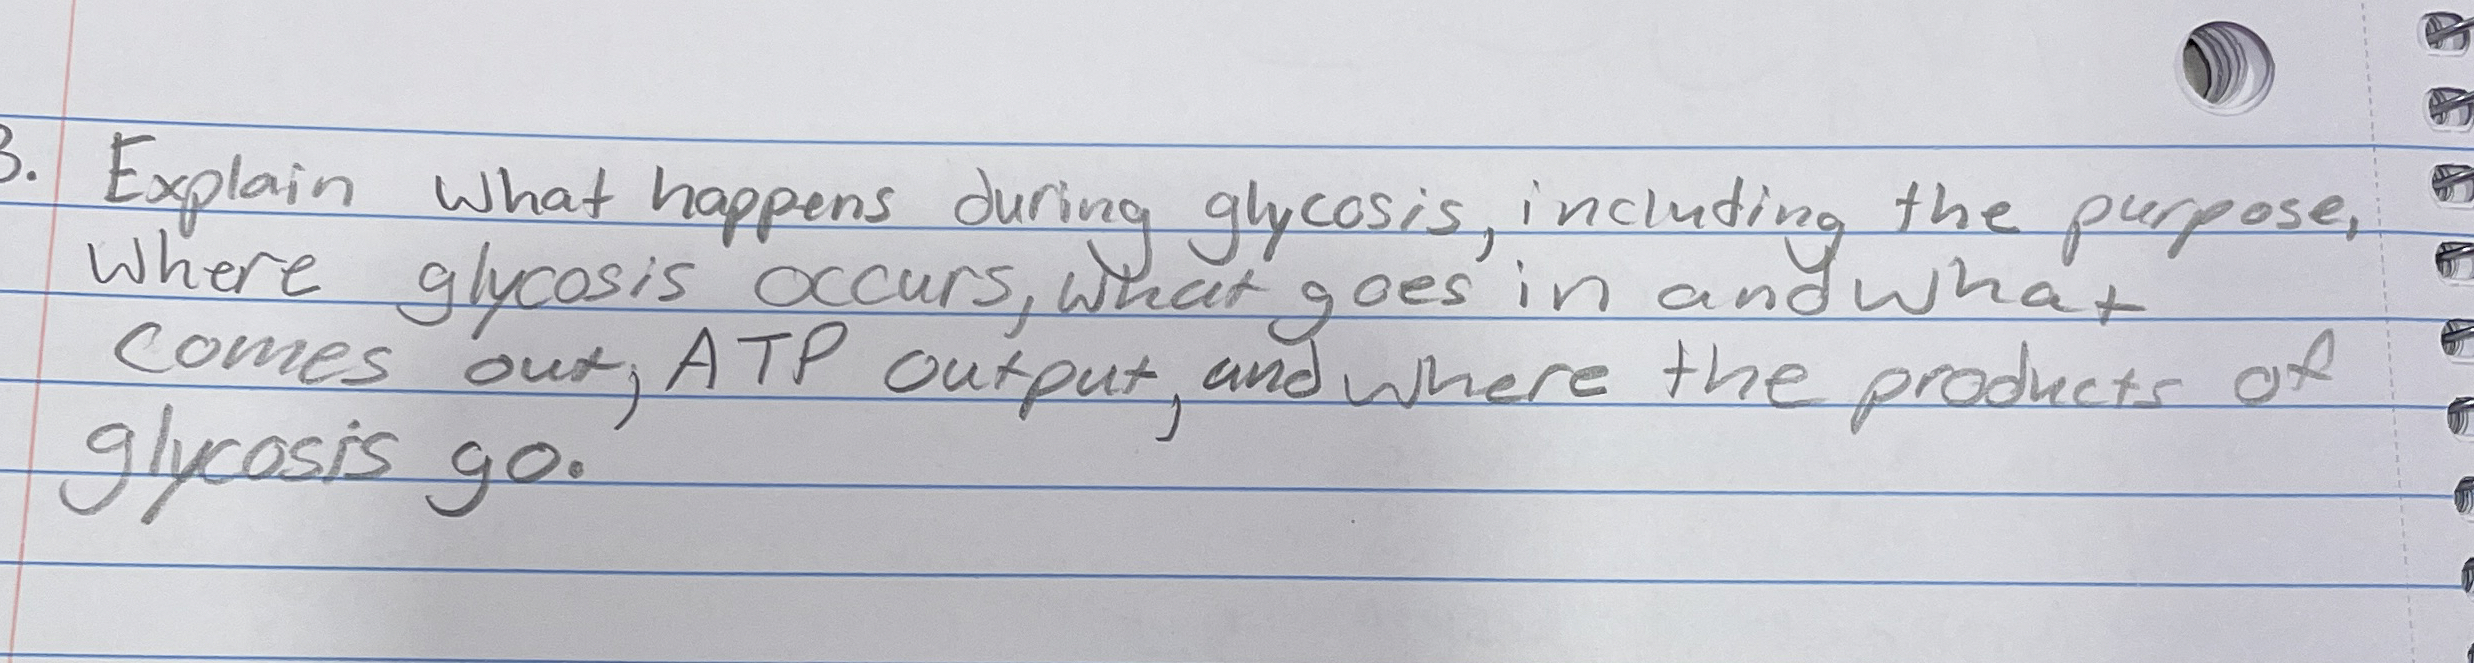 3. Explain what happens during glycosis, including the purpose,
where glycosis occurs, what goes in and what
comes out, ATP output, and where the products of
glycosis go.